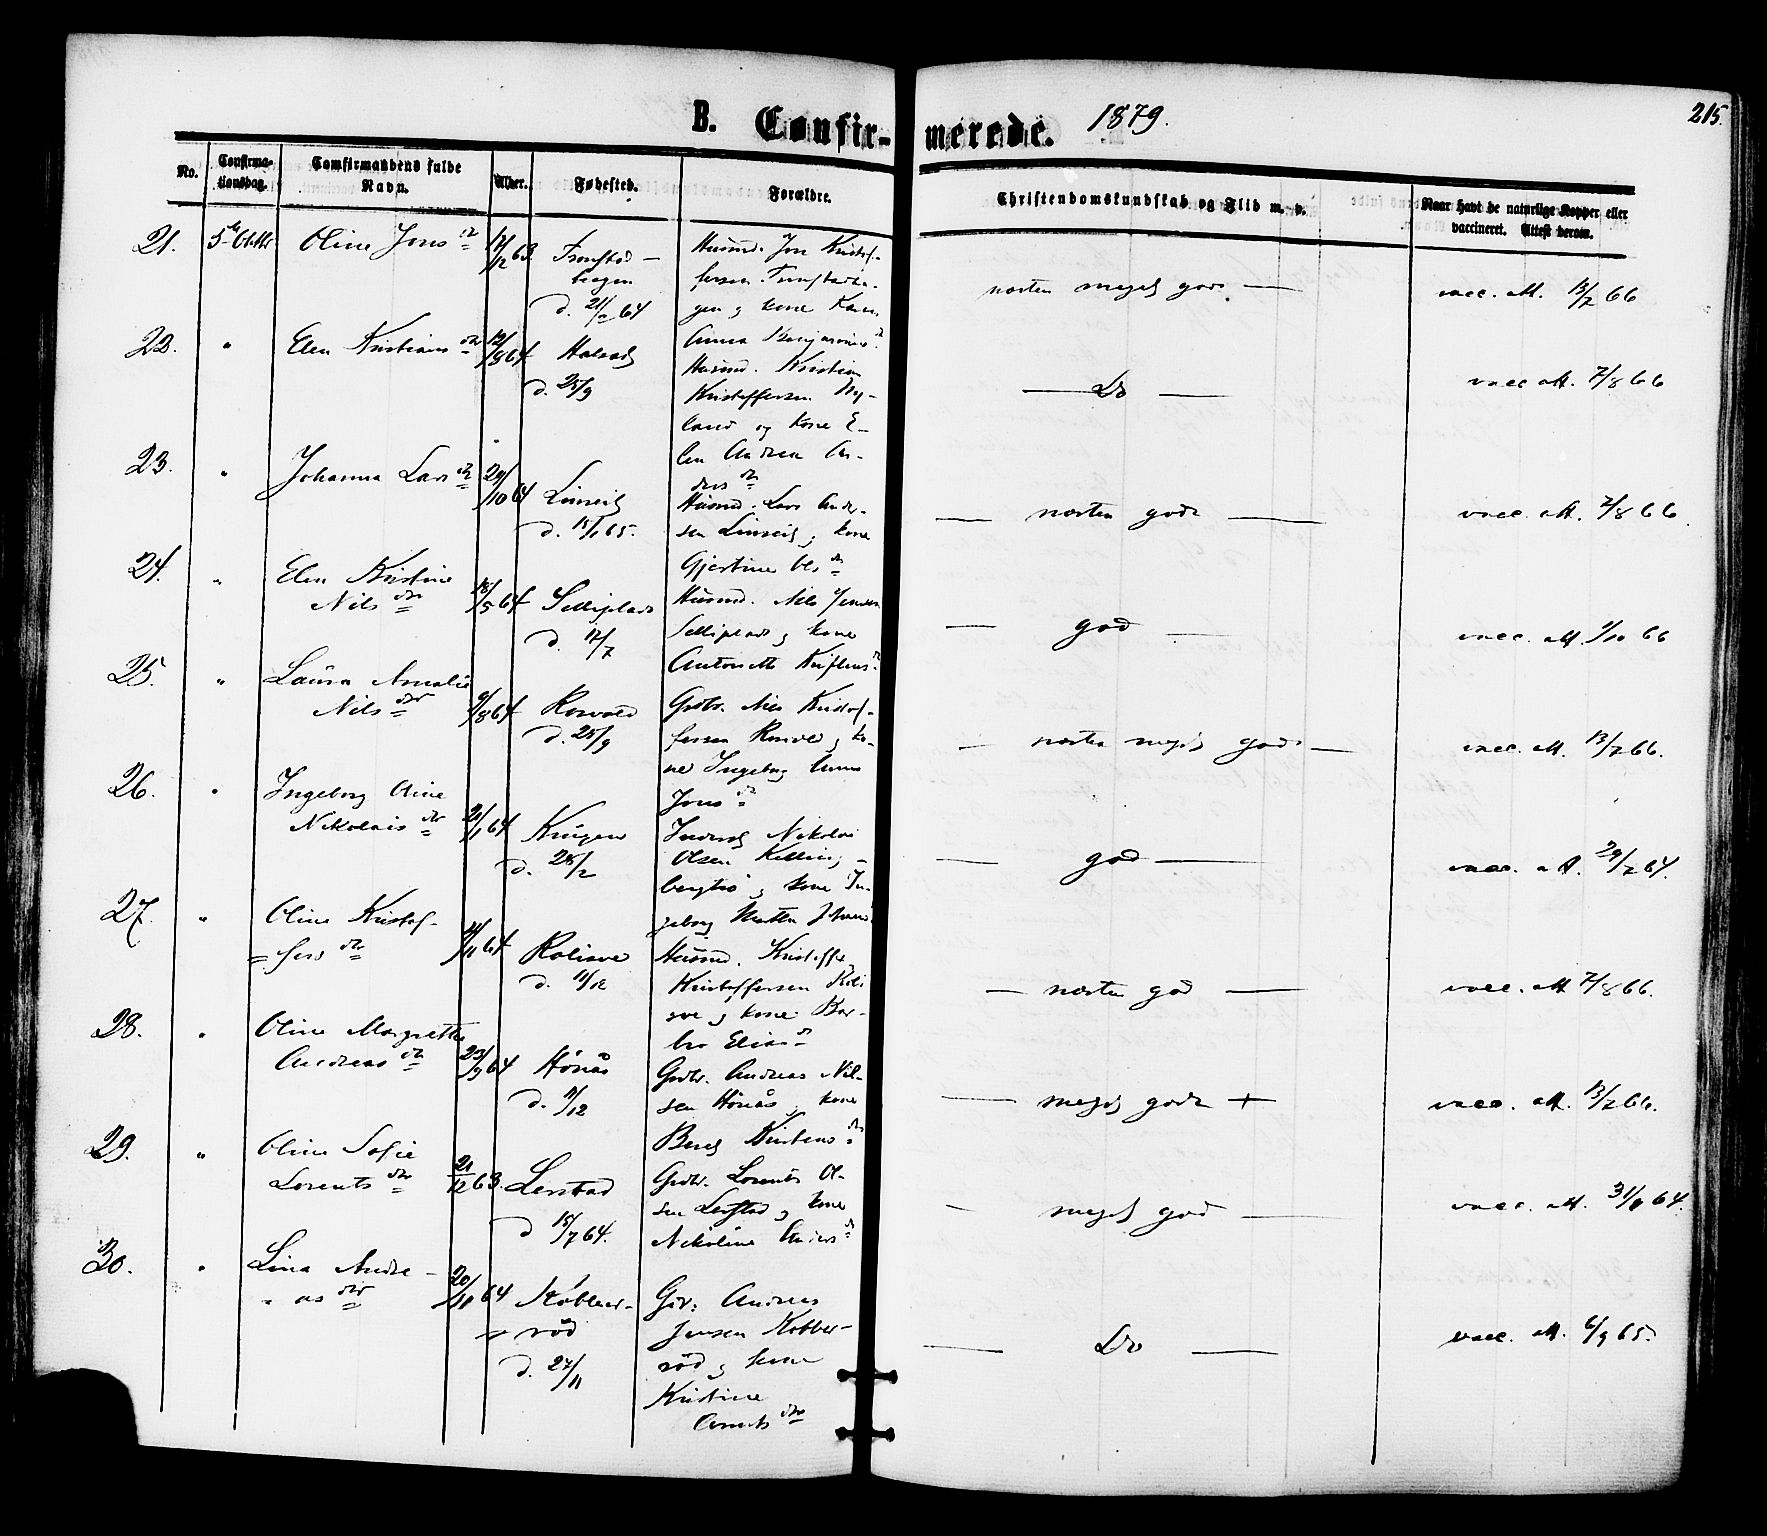 B. Confir- merede. 1879.
215.
No.
Confirma-
tionsdag.
Comfirmandens fulde
Navn.
Alder.
Fødested.
Forældre.
Christendomskundskab og Flid m. v.
Naar havt de naturlige Kopper eller
vaccineret. Attest herom.
21. 5te Oktbr Oline Jonsdtr 63
d. 64
Husmd. Jon Kristof-
fersen
gen og kone Karen
Anna
næsten meget god
vacc. att. 13/7 66
22. " Elen Kristiansdtr 12/8 64
d. 25/9
Husmd. Kristian
Kristoffersen My-
land og kone E-
len Andrea An-
dersdtr
Do
vacc att. 7/8 66
23. " Johanna Larsdtr 29/10 64 Linseid
d. 15/1 65.
Husmd. Lars Ander-
sen Linseid og kone
Gjertine Olsdtr
næsten god
vacc. att. 7/8 66
24. " Elen Kristine
Nilsdtr 18/5 64 Selliplads
d. 17/7
Husmd. Nils Jensen
Selliplads og kone
god
vacc. att. 1/10 66
25. " Laura Amalie
Nilsdtr 9/8 64 Rosvold
d. 25/9
Grdbr. Nils Kristof-
fersen og ko-
ne Ingeborg Anna
Jonsdtr
næsten meget god
vacc. att. 13/7 66.
26. " Ingeborg Oline
Nikolaisdtr 2/1 64
d. 28/2
Nikolai
Olsen Kelling-
og kone In-
geborg
god
vacc. att. 29/7 64.
27. " Oline Kristof-
fersdtr 11 64 Rolisve
d. 11/12
Husmd. Kristoffer
Kristoffersen Roli-
sve og kone Bar-
bro Eliasdtr
næsten god
vacc. att 7/8 66.
28. " Oline Margrette
Andreasdtr 23/9 64 Hönås
d. 11/12
Grdbr. Andreas Nil-
sen Hönås og kone
Berit
meget god +
vacc. att. 13/7 66.
29. " Oline Sofie
Lorentsdtr 21/12 63. Lerstad
d 15/7 64.
Grdbr. Lorents Ol-
sen Lerstad og kone
Nikoline
meget god
vacc. att. 64.
30. " Lina Andre-
asdtr 20 64 Kobber-
röd
d. 27/11
Andreas
Jensen Kobber-
röd og kone
Kristine
Arntsdtr
Do
vacc. att. 6/9 65.